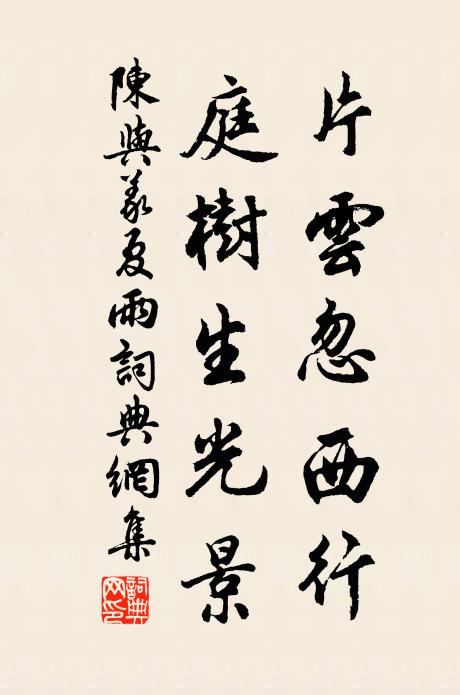 片雲忽西行
庭樹生光景
陳與義夏雨詞典網集
詞典網印